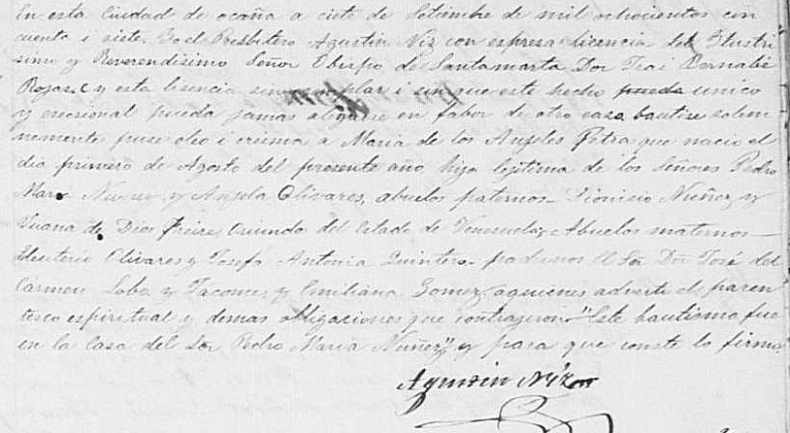 En esta Ciudad de ocaña a ciete de Setiembre de mil ochocientos cin
cuenta i siete. Yo el Presbitero Agustin Niz con espresa licencia del Ilustri
simo y Reverendisimo Señor Obispo de Santamarta Dor Frai Bernabé
Rojas, y esta licencia sin i sin que este hecho unico
y ecsecional pueda jamas alegarse en fabor de otro caso bautise solem
nemente puse oleo i crisma a Maria de los Anjeles Petra que nacio el
dia primero de Agosto del presente año hija lejitima de los Señores Pedro
Mara Nuñes y Anjela Olivares, abuelos paternos Dionicio Nuñez y
Juana de Dios Freire Oriundos del Estado de Venezuela, Abuelos maternos
Eleuterio Olivares y Josefa Antonia Quintero padrinos el Sor Dor José del
Carmen Lobo y Jacome, y Emiliana Gomez, aquienes adverti el paren
tesco espiritual y demas obligaciones que contrageron "Este bautismo fue
en la Casa del Sor Pedro Maria Nuñez" y para que conste lo firmo.
Agustin Niz